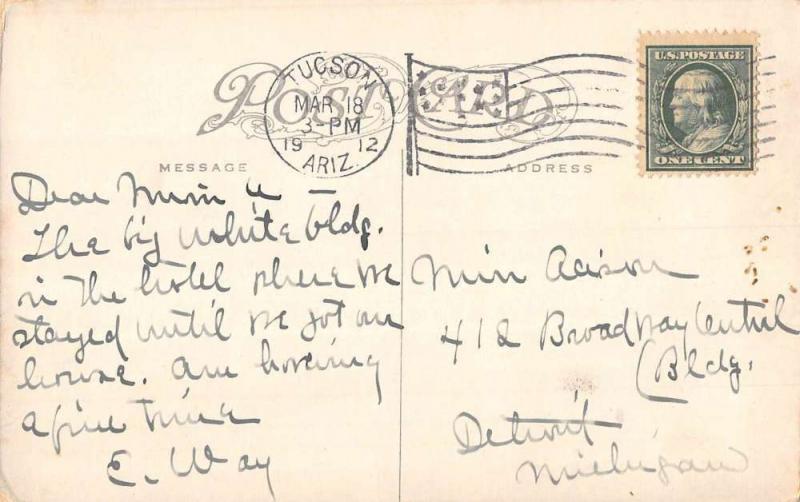 POST CARD
TUCSON
MAR 18
3-PM
19 12
ARIZ.
U.S. POSTAGE
ONE CENT
MESSAGE
ADDRESS
Dear Miss A —
The big white bldg.
is the hotel where we
stayed until we got our
house. Am having
a fine time
E. Way
Miss
412 Broadway Central
Bldg.
Detroit
Michigan